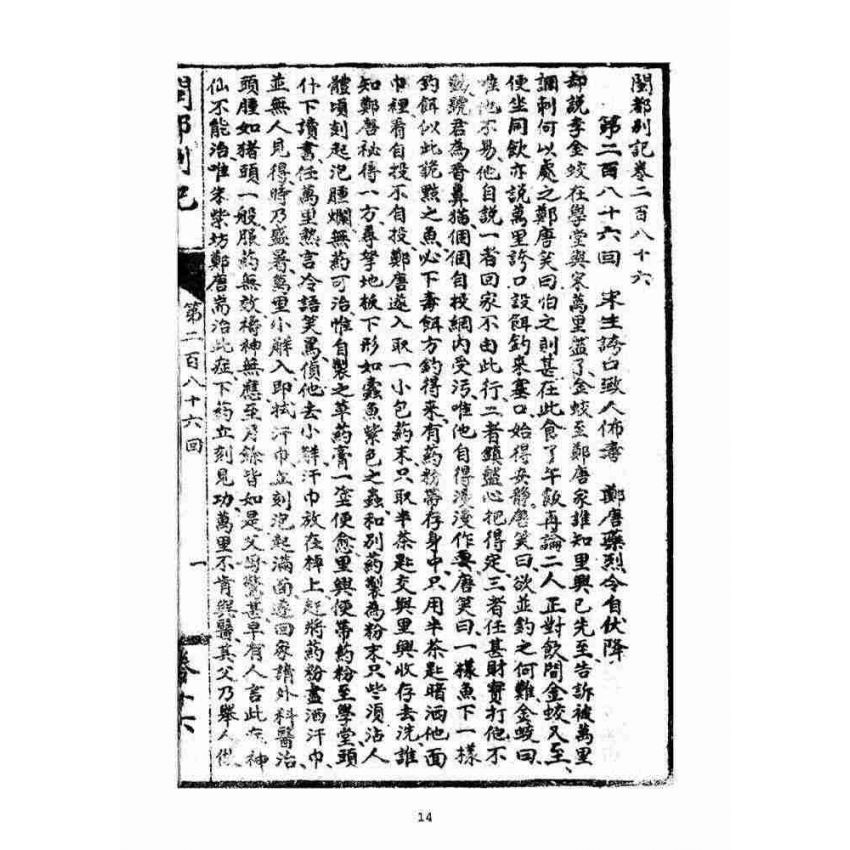 閩都別記卷二百八十六
第二百八十六回　宋生誇口致人佈毒　鄭唐藥烈令自伏降
却説李金蛟在學堂與宋萬里盖了金蛟至鄭唐家誰知里興已先至告訴被萬里
譏刺何以處之鄭唐笑曰怕之則甚在此食了午飯再論二人正對飲間金蛟又至、
便坐同飲亦説萬里誇口設餌釣來塞口、始得安静唐笑曰、欲並釣之何難金蛟曰、
唯他不易、他自説一者回家不由此行二者鎮監心把得定三者任甚財寶打他不
號君為香鼻猫、個個自投網内受污、唯他自得漫漫作耍唐笑曰、一樣魚下一樣
釣餌似此詭點之魚必下毒餌方釣得來、有葯粉帶存身中只用半茶匙暗洒他面
巾裡看自投不自投、鄭唐遂入取一小包葯末只取半茶匙交與里興收存去洗誰
知鄭唐秘得一方尋挐地板下形如蠹魚紫色之蟲和別葯製為粉末、只些須沾人
體頃刻起泡腫爛、無葯可治、惟自製之草葯膏一塗便愈里興便帶葯粉至學堂頭
仆下讀書任萬里熱言冷語笑罵、偵他去小觧汗巾放在棹上起將葯粉盡洒汗巾、
並無人見得時乃盛暑、萬里小觧入即拭汗巾、立刻泡起滿面遂回家請外科醫治
頭腫如猪頭一般、服葯無效檮神無應至月餘皆如是父母驚甚早有人言此症神
仙不能治、唯朱紫坊鄭唐耑治此症下葯立刻見功、萬里不肯與醫其父乃舉人做
閩都別記
第二百八十六回
一
14